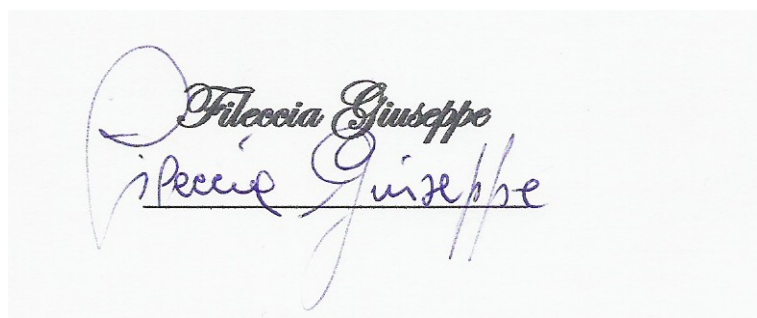 Fileccia Giuseppe
Fileccia Giuseppe